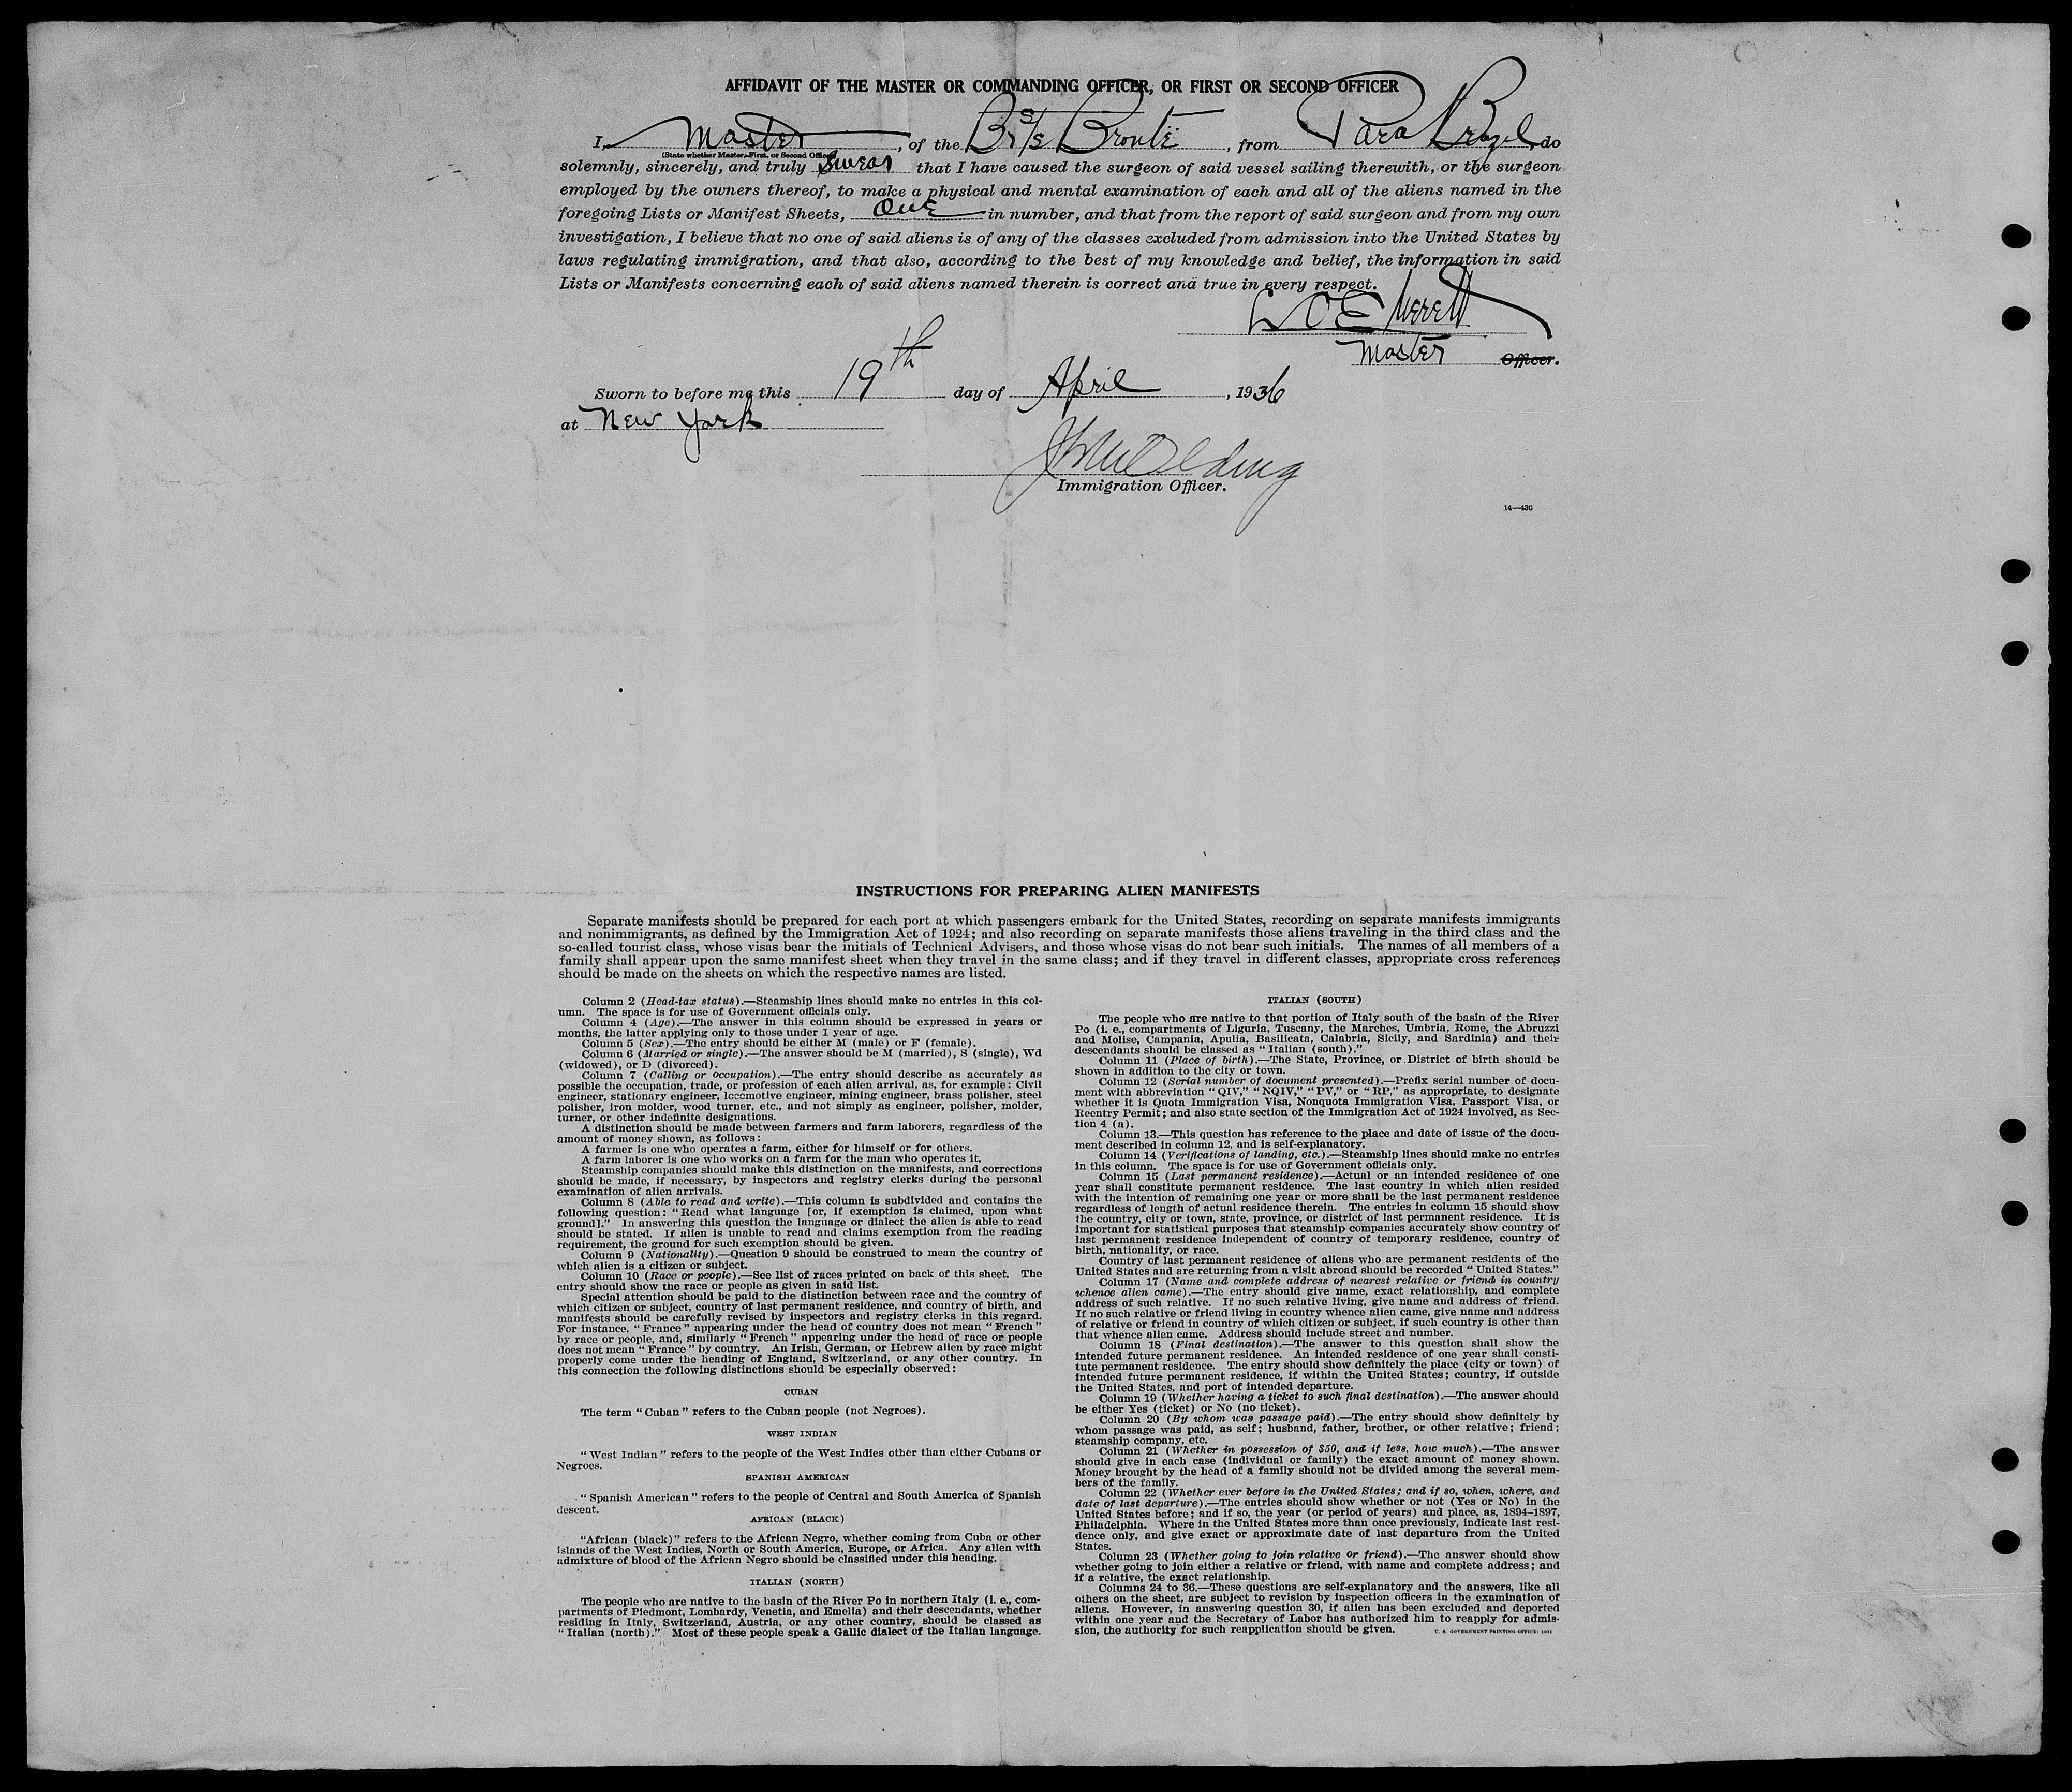 AFFIDAVIT OF THE MASTER OR COMMANDING OFFICER, OR FIRST OR SECOND OFFICER
I, Master, of the Br S/S Brontë, from Para Brazil, do
(State whether Master, First, or Second Officer)
solemnly, sincerely, and truly swear that I have caused the surgeon of said vessel sailing therewith, or the surgeon
employed by the owners thereof, to make a physical and mental examination of each and all of the aliens named in the
foregoing Lists or Manifest Sheets, one in number, and that from the report of said surgeon and from my own
investigation, I believe that no one of said aliens is of any of the classes excluded from admission into the United States by
laws regulating immigration, and that also, according to the best of my knowledge and belief, the information in said
Lists or Manifests concerning each of said aliens named therein is correct and true in every respect.
Everett
Master Officer.
Sworn to before me this 19th day of April, 1936
at New York
Immigration Officer.
14—430
INSTRUCTIONS FOR PREPARING ALIEN MANIFESTS
Separate manifests should be prepared for each port at which passengers embark for the United States, recording on separate manifests immigrants
and nonimmigrants, as defined by the Immigration Act of 1924; and also recording on separate manifests those aliens traveling in the third class and the
so-called tourist class, whose visas bear the initials of Technical Advisers, and those whose visas do not bear such initials. The names of all members of a
family shall appear upon the same manifest sheet when they travel in the same class; and if they travel in different classes, appropriate cross references
should be made on the sheets on which the respective names are listed.
Column 2 (Head-tax status).—Steamship lines should make no entries in this col-
umn. The space is for use of Government officials only.
Column 4 (Age).—The answer in this column should be expressed in years or
months, the latter applying only to those under 1 year of age.
Column 5 (Sex).—The entry should be either M (male) or F (female).
Column 6 (Married or single).—The answer should be M (married), S (single), Wd
(widowed), or D (divorced).
Column 7 (Calling or occupation).—The entry should describe as accurately as
possible the occupation, trade, or profession of each alien arrival, as, for example: Civil
engineer, stationary engineer, locomotive engineer, mining engineer, brass polisher, steel
polisher, iron molder, wood turner, etc., and not simply as engineer, polisher, molder,
turner, or other indefinite designations.
A distinction should be made between farmers and farm laborers, regardless of the
amount of money shown, as follows:
A farmer is one who operates a farm, either for himself or for others.
A farm laborer is one who works on a farm for the man who operates it.
Steamship companies should make this distinction on the manifests, and corrections
should be made, if necessary, by inspectors and registry clerks during the personal
examination of alien arrivals.
Column 8 (Able to read and write).—This column is subdivided and contains the
following question: "Read what language [or, if exemption is claimed, upon what
ground]." In answering this question the language or dialect the alien is able to read
should be stated. If alien is unable to read and claims exemption from the reading
requirement, the ground for such exemption should be given.
Column 9 (Nationality).—Question 9 should be construed to mean the country of
which alien is a citizen or subject.
Column 10 (Race or people).—See list of races printed on back of this sheet. The
entry should show the race or people as given in said list.
Special attention should be paid to the distinction between race and the country of
which citizen or subject, country of last permanent residence, and country of birth, and
manifests should be carefully revised by inspectors and registry clerks in this regard.
For instance, "France" appearing under the head of country does not mean "French"
by race or people, and, similarly "French" appearing under the head of race or people
does not mean "France" by country. An Irish, German, or Hebrew alien by race might
properly come under the heading of England, Switzerland, or any other country. In
this connection the following distinctions should be especially observed:
CUBAN
The term "Cuban" refers to the Cuban people (not Negroes).
WEST INDIAN
"West Indian" refers to the people of the West Indies other than either Cubans or
Negroes.
SPANISH AMERICAN
"Spanish American" refers to the people of Central and South America of Spanish
descent.
AFRICAN (BLACK)
"African (black)" refers to the African Negro, whether coming from Cuba or other
islands of the West Indies, North or South America, Europe, or Africa. Any alien with
admixture of blood of the African Negro should be classified under this heading.
ITALIAN (NORTH)
The people who are native to the basin of the River Po in northern Italy (i. e., com-
partments of Piedmont, Lombardy, Venetia, and Emelia) and their descendants, whether
residing in Italy, Switzerland, Austria, or any other country, should be classed as
"Italian (north)." Most of these people speak a Gallic dialect of the Italian language.
ITALIAN (SOUTH)
The people who are native to that portion of Italy south of the basin of the River
Po (i. e., compartments of Liguria, Tuscany, the Marches, Umbria, Rome, the Abruzzi
and Molise, Campania, Apulia, Basilicata, Calabria, Sicily, and Sardinia) and their
descendants should be classed as "Italian (south)."
Column 11 (Place of birth).—The State, Province, or District of birth should be
shown in addition to the city or town.
Column 12 (Serial number of document presented).—Prefix serial number of docu-
ment with abbreviation "QIV," "NQIV," "PV," or "RP," as appropriate, to designate
whether it is Quota Immigration Visa, Nonquota Immigration Visa, Passport Visa, or
Reentry Permit; and also state section of the Immigration Act of 1924 involved, as Sec-
tion 4 (a).
Column 13.—This question has reference to the place and date of issue of the docu-
ment described in column 12, and is self-explanatory.
Column 14 (Verifications of landing, etc.).—Steamship lines should make no entries
in this column. The space is for use of Government officials only.
Column 15 (Last permanent residence).—Actual or an intended residence of one
year shall constitute permanent residence. The last country in which alien resided
with the intention of remaining one year or more shall be the last permanent residence
regardless of length of actual residence therein. The entries in column 15 should show
the country, city or town, state, province, or district of last permanent residence. It is
important for statistical purposes that steamship companies accurately show country of
last permanent residence independent of country of temporary residence, country of
birth, nationality, or race.
Country of last permanent residence of aliens who are permanent residents of the
United States and are returning from a visit abroad should be recorded "United States."
Column 17 (Name and complete address of nearest relative or friend in country
whence alien came).—The entry should give name, exact relationship, and complete
address of such relative. If no such relative living, give name and address of friend.
If no such relative or friend living in country whence alien came, give name and address
of relative or friend in country of which citizen or subject, if such country is other than
that whence alien came. Address should include street and number.
Column 18 (Final destination).—The answer to this question shall show the
intended future permanent residence. An intended residence of one year shall consti-
tute permanent residence. The entry should show definitely the place (city or town) of
intended future permanent residence, if within the United States; country, if outside
the United States, and port of intended departure.
Column 19 (Whether having a ticket to such final destination).—The answer should
be either Yes (ticket) or No (no ticket).
Column 20 (By whom was passage paid).—The entry should show definitely by
whom passage was paid, as self; husband, father, brother, or other relative; friend;
steamship company, etc.
Column 21 (Whether in possession of $50, and if less, how much).—The answer
should give in each case (individual or family) the exact amount of money shown.
Money brought by the head of a family should not be divided among the several mem-
bers of the family.
Column 22 (Whether ever before in the United States; and if so, when, where, and
date of last departure).—The entries should show whether or not (Yes or No) in the
United States before; and if so, the year (or period of years) and place, as, 1894–1897,
Philadelphia. Where in the United States more than once previously, indicate last resi-
dence only, and give exact or approximate date of last departure from the United
States.
Column 23 (Whether going to join relative or friend).—The answer should show
whether going to join either a relative or friend, with name and complete address; and
if a relative, the exact relationship.
Columns 24 to 36.—These questions are self-explanatory and the answers, like all
others on the sheet, are subject to revision by inspection officers in the examination of
aliens. However, in answering question 30, if alien has been excluded and deported
within one year and the Secretary of Labor has authorized him to reapply for admis-
sion, the authority for such reapplication should be given.
U. S. GOVERNMENT PRINTING OFFICE: 1931